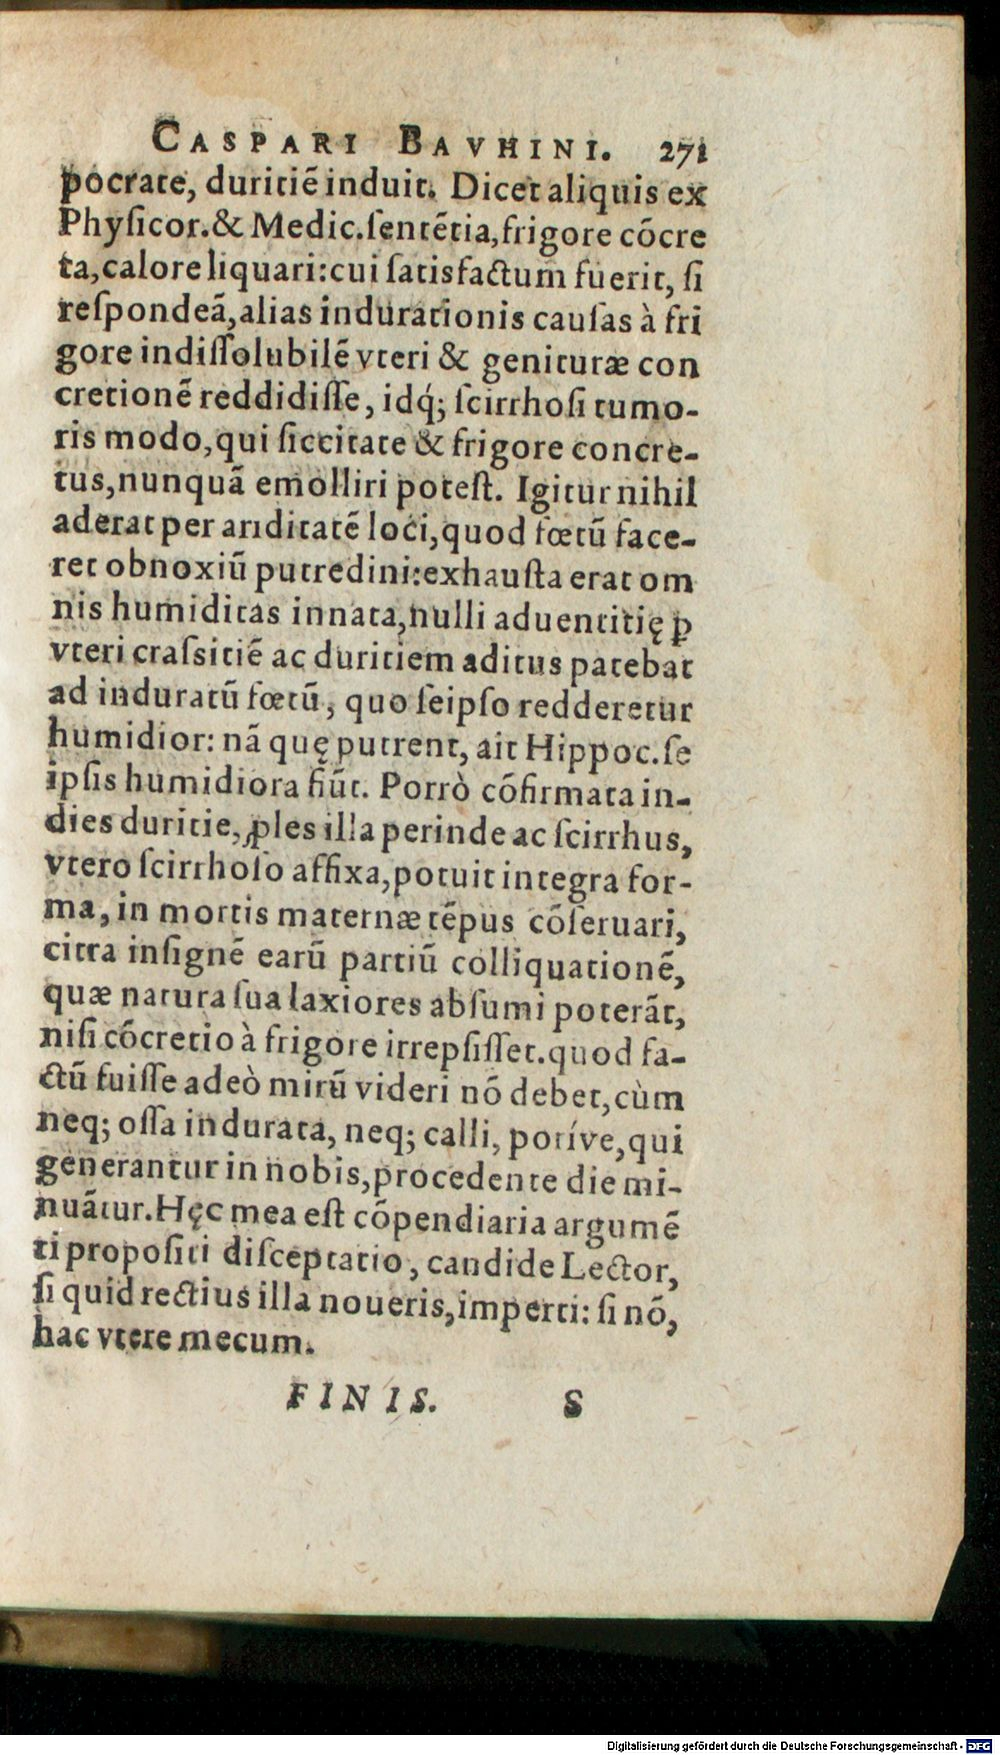 CASPARI BAVHINI. 271
pocrate, duritiẽ induit. Dicet aliquis ex
Phyſicor.& Medic.ſentẽtia,frigore cõcre
ta,calore liquari:cui ſatisfactum fuerit, ſi
reſpondeã,alias indurationis cauſas à fri
gore indiſſolubilẽ vteri & genituræ con
cretionẽ reddidiſſe, idq́; ſcirrhoſi tumo-
ris modo,qui ſiccitate & frigore concre-
tus,nunquã emolliri poteſt. Igitur nihil
aderat per ariditatẽ loci,quod fœtũ face-
ret obnoxiũ putredini:exhauſta erat om
nis humiditas innata,nulli aduentitię ꝑ
vteri craſsitiẽ ac duritiem aditus patebat
ad induratũ fœtũ, quo ſeipſo redderetur
humidior: nã quę putrent, ait Hippoc.ſe
ipſis humidiora fiũt. Porrò cõfirmata in-
dies duritie, ꝓles illa perinde ac ſcirrhus,
vtero ſcirrhoſo affixa,potuit integra for-
ma, in mortis maternæ tẽpus cõſeruari,
citra inſignẽ earũ partiũ colliquationẽ,
quæ natura ſua laxiores abſumi poterãt,
niſi cõcretio à frigore irrepſiſſet.quod fa-
ctũ fuiſſe adeò mirũ videri nõ debet,cùm
neq; oſſa indurata, neq; calli, poríve,qui
generantur in nobis,procedente die mi-
nuãtur.Hęc mea eſt cõpendiaria argumẽ
ti propoſiti diſceptatio, candide Lector,
ſi quid rectius illa noueris,imperti: ſi nõ,
hac vtere mecum.
FINIS. S
Digitalisierung gefördert durch die Deutsche Forschungsgemeinschaft - DFG